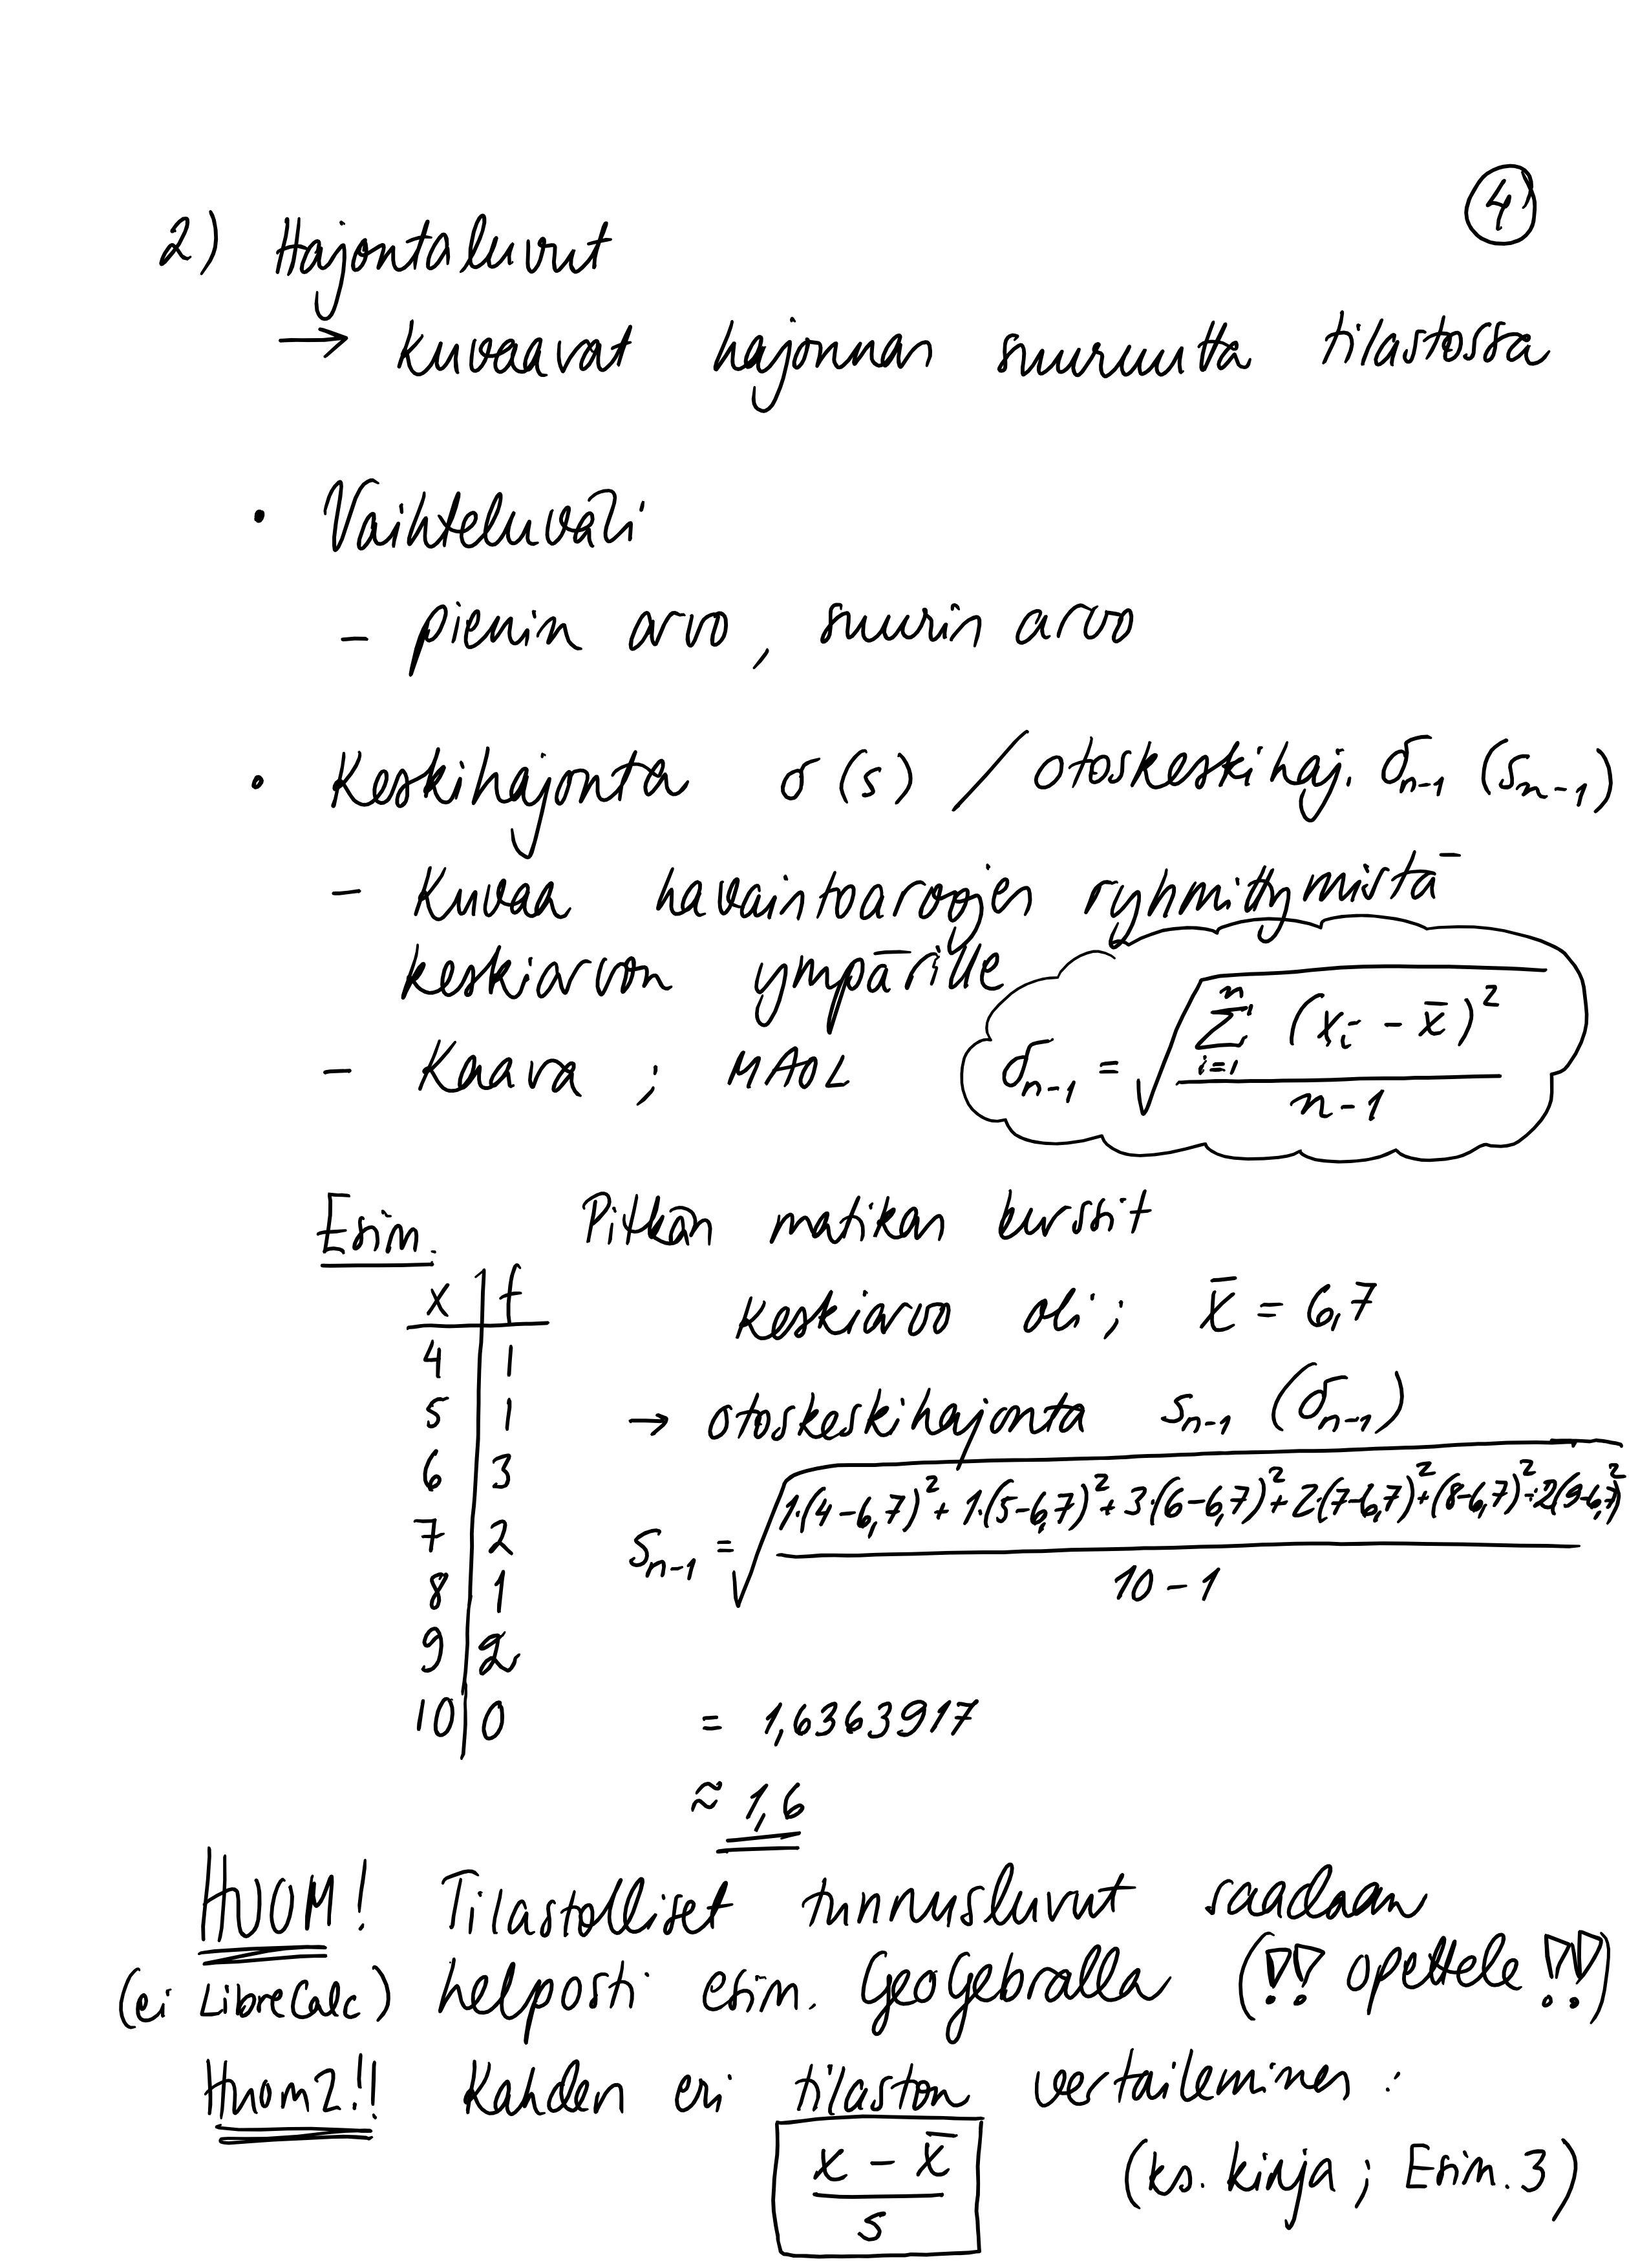 4
2) Hajontaluvut
→ kuvaavat hajonnan suuruutta tilastossa
• Vaihteluväli
– pienin arvo, suurin arvo
• Keskihajonta σ (s) / otoskeskihaj. σₙ₋₁ (sₙ₋₁)
– Kuvaa havaintoarvojen ryhmittymistä
keskiarvon ympärille
– Kaava ; MAOL
σₙ₋₁ = √( Σⁿᵢ₌₁ (xᵢ – x̄)² / (n-1) )
Esim. Pitkän matikan kurssit
x | f
keskiarvo oli ; x̄ = 6,7
4 | 1
5 | 1
→ otoskeskihajonta sₙ₋₁ (σₙ₋₁)
6 | 3
7 | 2
sₙ₋₁ = √( (1·(4-6,7)² + 1·(5-6,7)² + 3·(6-6,7)² + 2·(7-6,7)² + (8-6,7)² + 2(9-6,7)²) / (10-1) )
8 | 1
9 | 2
10 | 0
= 1,6363917
≈ 1,6
HUOM! Tilastolliset tunnusluvut saadaan
(ei LibreCalc) helposti esim. GeoGebralla (!! opettele !!)
Huom2!! Kahden eri tilaston vertaileminen :
(x – x̄) / s
(ks. kirja ; Esim. 3)